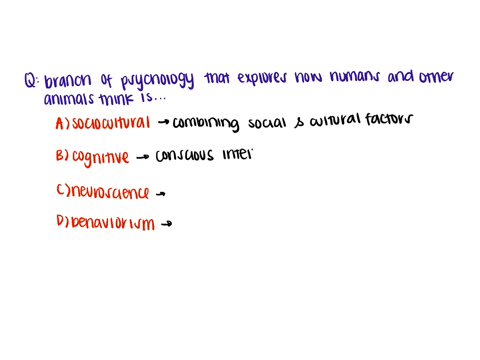 Q: branch of psychology that explores how humans and other
animals think is...
A) sociocultural → combining social & cultural factors
B) cognitive → conscious inter
C) neuroscience →
D) behaviorism →